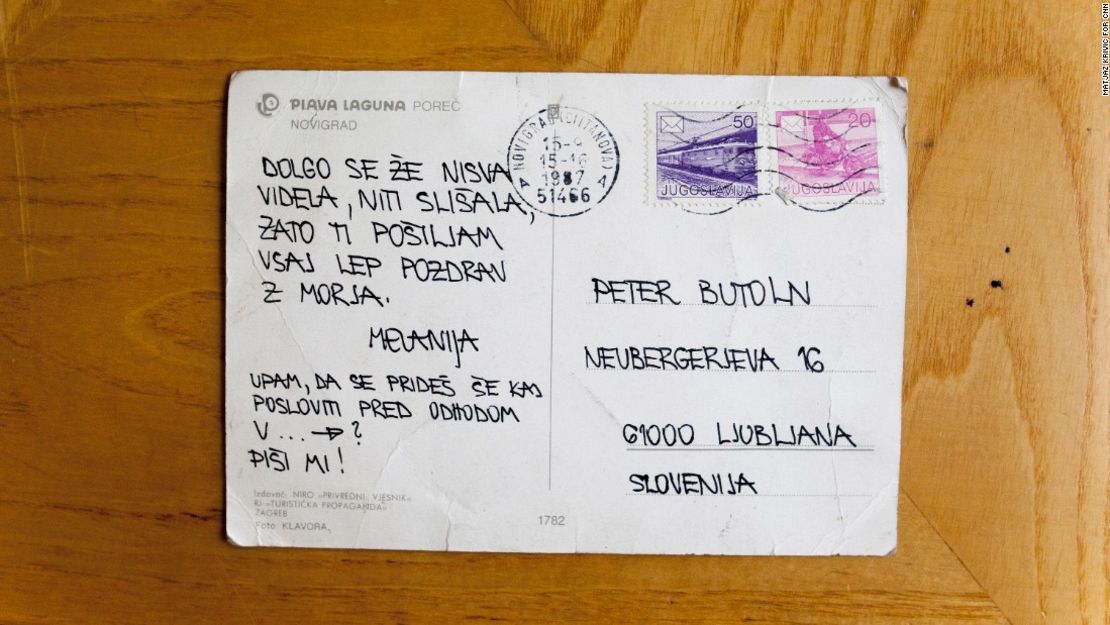 PLAVA LAGUNA POREČ
NOVIGRAD
DOLGO SE ŽE NISVA
VIDELA, NITI SLIŠALA,
ZATO TI POŠILJAM
VSAJ LEP POZDRAV
Z MORJA.
MELANIJA
UPAM, DA SE PRIDEŠ ŠE KAJ
POSLOVITI PRED ODHODOM
V ... → ?
PIŠI MI!
Izdavač: NIRO »PRIVREDNI VJESNIK«
RJ »TURISTIČKA PROPAGANDA«
ZAGREB
Foto: KLAVORA
1782
NOVIGRAD (CITTANOVA)
15-9
15-16
1987
A 51466 A
50
JUGOSLAVIJA
20
JUGOSLAVIJA
PETER BUTOLN
NEUBERGERJEVA 16
61000 LJUBLJANA
SLOVENIJA
MATJAZ KRIVIC FOR CNN